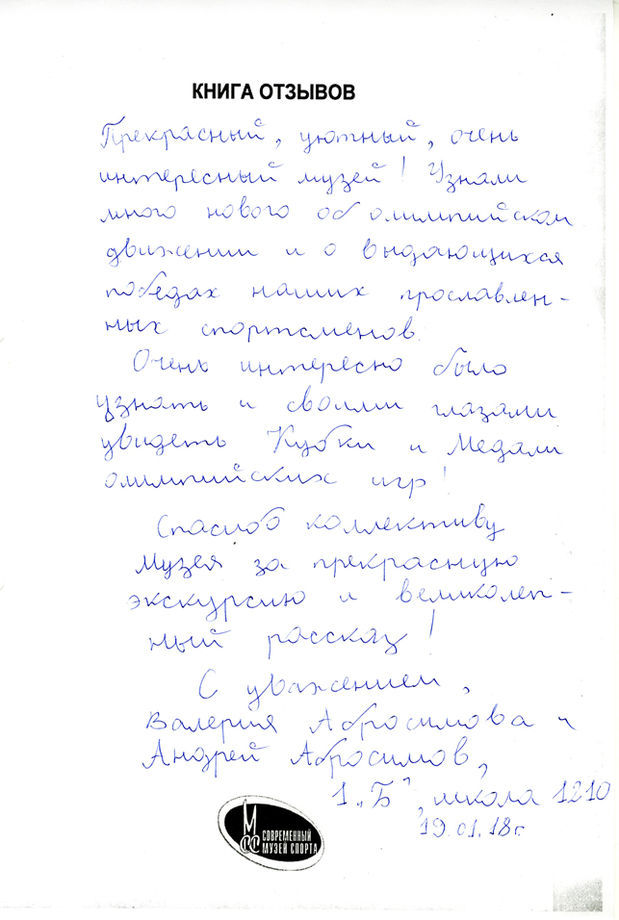 КНИГА ОТЗЫВОВ
Прекрасный, уютный, очень
интересный музей! Узнали
много нового об олимпийском
движении и о выдающихся
победах наших прославлен-
ных спортсменов.
Очень интересно было
узнать и своими глазами
увидеть Кубки и Медали
олимпийских игр!
Спасибо коллективу
Музея за прекрасную
экскурсию и великолеп-
ный рассказ!
С уважением,
Валерия Абросимова и
Андрей Абросимов,
1 „Б“, школа 1210
19.01.18г.
МСС СОВРЕМЕННЫЙ
МУЗЕЙ СПОРТА